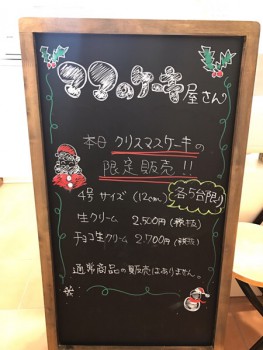 ママのケーキ屋さん
本日 クリスマスケーキの
限定販売!!
各5台限り
4号 サイズ (12cm)
生クリーム 2,500円(税抜)
チョコ生クリーム 2,700円(税抜)
通常商品の販売はありません。